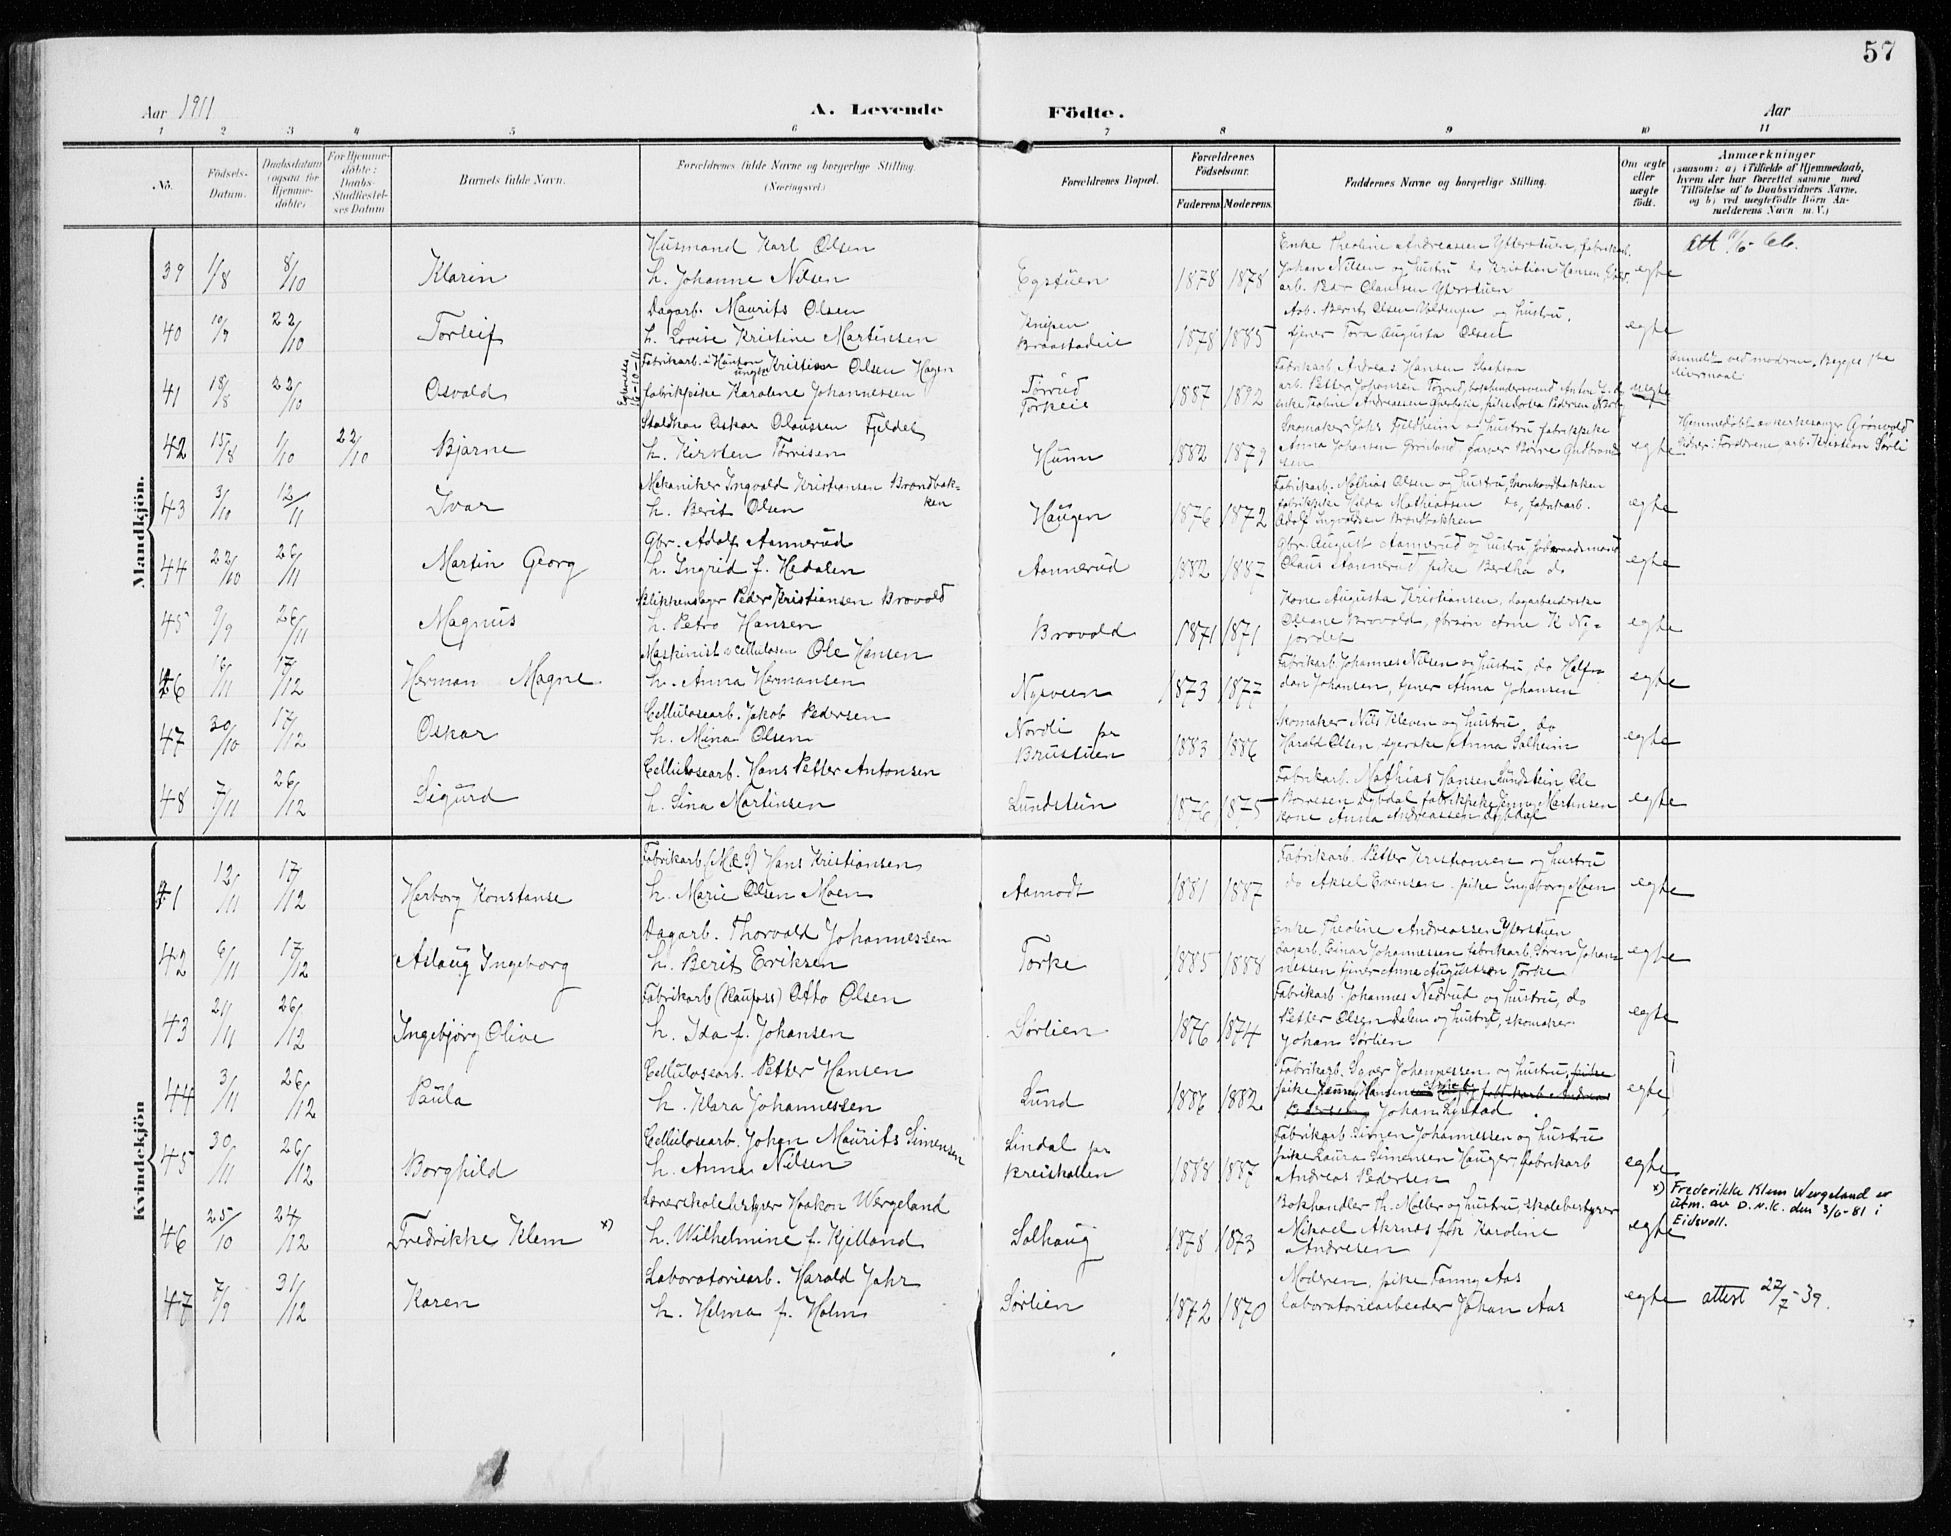 57
Aar 1911 A. Levende Födte. Aar
1 2 3 4 5 6 7 8 9 10 11
No. Födsels-Datum. Daabsdatum (ogsaa for Hjemme-döbte) For Hjemme-döbte: Daabs-Stadfæstel-ses Datum Barnets fulde Navn. Forældrenes fulde Navne og borgerlige Stilling. (Næringsvei.) Forældrenes Bopæl. Forældrenes Födselsaar. Faderens Moderens. Faddernes Navne og borgerlige Stilling. Om ægte eller uægte födt. Anmærkninger (saasom: a) i Tilfælde af Hjemmedaab, hvem der har forrettet samme med Tilföielse af to Daabsvidners Navne, og b) ved uægtefödte Börn An-melderens Navn m. V.)
Mandkjön.
39 1/8 8/10 Klarin
Husmand Karl Olsen
h. Johanne Nilsen
Egstuen 1878 1878
Enke Theoline Andreassen Ytterstuen, fabrikarb.
Johan Nilsen og hustru do Kristian Hansen
arb. Olausen Ytterstuen
egte
Att 11/6-66.
40 10/9 22/10 Torleif
Dagarb. Maurits Olsen
h. Lovise Kristine Martinsen
Knipen
Braastadeie
1878 1885
Arb. Bernt Olsen og hustru,
tjener Tora Augusta Olsen
egte
41 18/8 22/10 Osvald
Fabrikarb. i Hunton ungk. Kristian Olsen Hagen
fabrikpike Karoline Johannessen
Torrud
Torkeie
1887 1892
Fabrikarb Andreas Hansen
arb. Petter Johansen Torrud,
enke Teoline Andreassen
uegte
anmeldt ved moderen. Begges 1ste
leiermaal
42 15/8 1/10 22/10 Bjarne
Staldkar Oskar Olaussen Fjeldet
h. Kirsten Torvisen
Hunn 1882 1879
Skomaker Johs Fjeldheim og hustru fabrikpike
Anna Johansen Grönland, garver Borre Gudbrand
sen
egte
Hjemmedöbt av kirkesanger Grönvold
Fadrene arb. Kristian Sörli
43 3/10 12/11 Ivar
Mekaniker Ingvald Kristiansen Brandbak=
ken
h. Berit Olsen
Haugen 1876 1872
Fabrikarb. Mathias Olsen og hustru,
fabrikpike Hilda Mathiassen do, fabrikarb.
Adolf Ingvaldsen Brandbakken
egte
44 22/10 26/11 Martin Georg
Gbr. Adolf Aannerud
h. Ingrid f. Hedalen
Aannerud 1882 1887
Gbr. August Aannerud og hustru,
Olaus Aannerud pike Bertha do
egte
45 9/9 26/11 Magnus
Blikkenslager Peder Kristiansen Brovold
h. Petra Hansen
Brovold 1871 1871
Kone Augusta Kristiansen, dagarbeiderske
Oleane Brovold, gbrsön Arne K Ny=
jordet
egte
46 16/11 17/12 Herman Magne
Maskinist v. Cellulosen Ole Hansen
h. Anna Hermansen
Nysveen 1873 1877
Fabrikarb Johannes Nilsen og hustru do Half=
dan Johansen, tjener Anna Johansen
egte
47 30/10 17/12 Oskar
Cellulosearb. Jakob Pedersen
h. Mina Olsen
Nordli pr
Brustuen
1883 1886
Skomaker Nils Kleven og hustru, do
Harald Olsen syerske Anna Solheim
egte
48 7/11 26/12 Sigurd
Cellulosearb. Hans Petter Antonsen
h. Sina Martinsen
Lundstein 1876 1875
Fabrikarb. Mathias Hansen Lundstein Ole
Borresen Dybdal fabrikpike Jenny Martinsen
kone Anna Andreassen Dybdal
egte
Kvindekjön
41 12/11 17/12 Herborg Konstanse
Fabrikarb (M&S) Hans Kristiansen
h. Marie Olsen Moen
Aamodt 1881 1887
Fabrikarb. Petter Kristiansen og hustru
do Aksel Evensen. pike Ingeborg Moen
egte
42 6/11 17/12 Aslaug Ingeborg
Dagarb. Thorvald Johannessen
h. Berit Eriksen
Torke 1885 1888
Enke Theoline Andreassen Ytterstuen
dagarb. Einar Johannessen fabrikarb Sören Johan=
nessen tjener Anne Augustsen Torke
egte
43 21/11 26/12 Ingebjörg Olive
Fabrikarb (Raufoss) Otto Olsen
h. Ida f. Johansen
Sörlien 1876 1874
Fabrikarb. Johannes Nedrud og hustru, do
Petter Olsen Dalen og hustru, skomaker
Johan Sörlien
egte
44 3/11 26/12 Paula
Cellulosearb. Petter Hansen
h. Klara Johannessen
Lund 1886 1882
Fabrikarb. Johannessen og hustru, pike
pike Hansen fabrikarb Andreas
Pedersen Johan Lystad
egte
45 30/11 26/12 Borghild
Cellulosearb. Johan Maurits Simensen
h. Anna Nilsen
Lindal pr
Breiskallen
1888 1887
Fabrikarb Simen Johannessen og hustru
pike Laura Simensen Hauger, fabrikarb
Andreas Pedersen
egte
46 25/10 24/12 Fredrikke Klem x)
Lærerskolebestyrer Haakon Wergeland
h. Wilhelmine f. Kjelland
Solhaug 1878 1873
Bokhandler Th. Möller og hustru, skolebestyrer
Mikael Aarnes frk Karoline
Andresen
egte
x) Frederikke Klem Wergeland er
utm. av D.N.K. den 3/6-81 i
Eidsvoll.
47 7/9 31/12 Karen
Laboratoriearb. Harald Jahr
h. Helma f. Holm
Sörlien 1872 1870
Moderen, pike Fanny Aas
laboratoriearbeider Johan Aas
egte
attest 27/7-39.